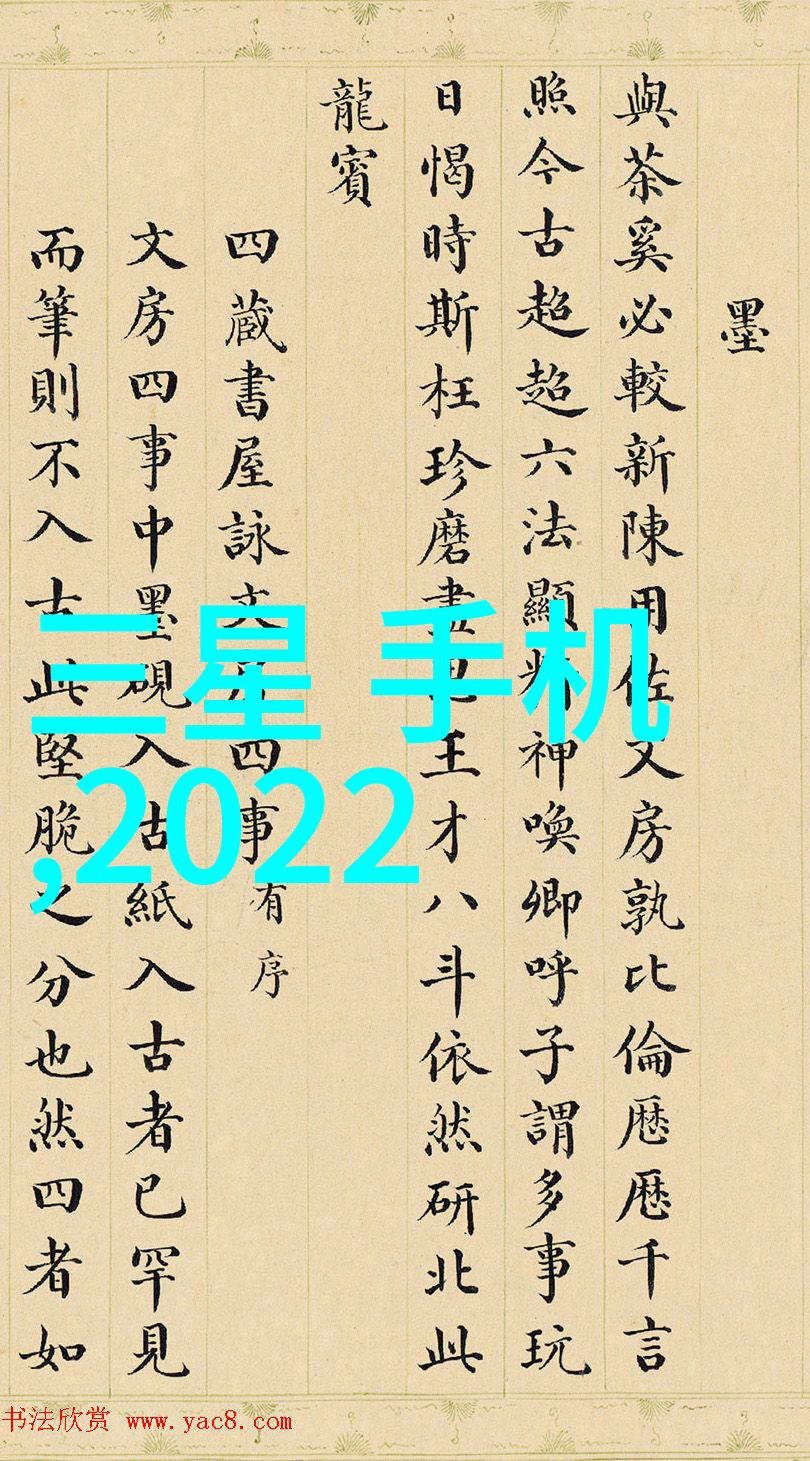 墨
與茶奚必較新陳用佐文房孰比倫厯厯千言
照今古超超六法顯神喚卿呼子謂多事玩
日愒時斯枉珍磨盡王才八斗依然研北此
龍賓
四蔵書屋詠文房四事有序
文房四事中墨硯入古紙入古者已罕見
而筆則不入古此堅脆之分也然四者如
三星 手机
,2022
书法欣赏 www.yac8.com